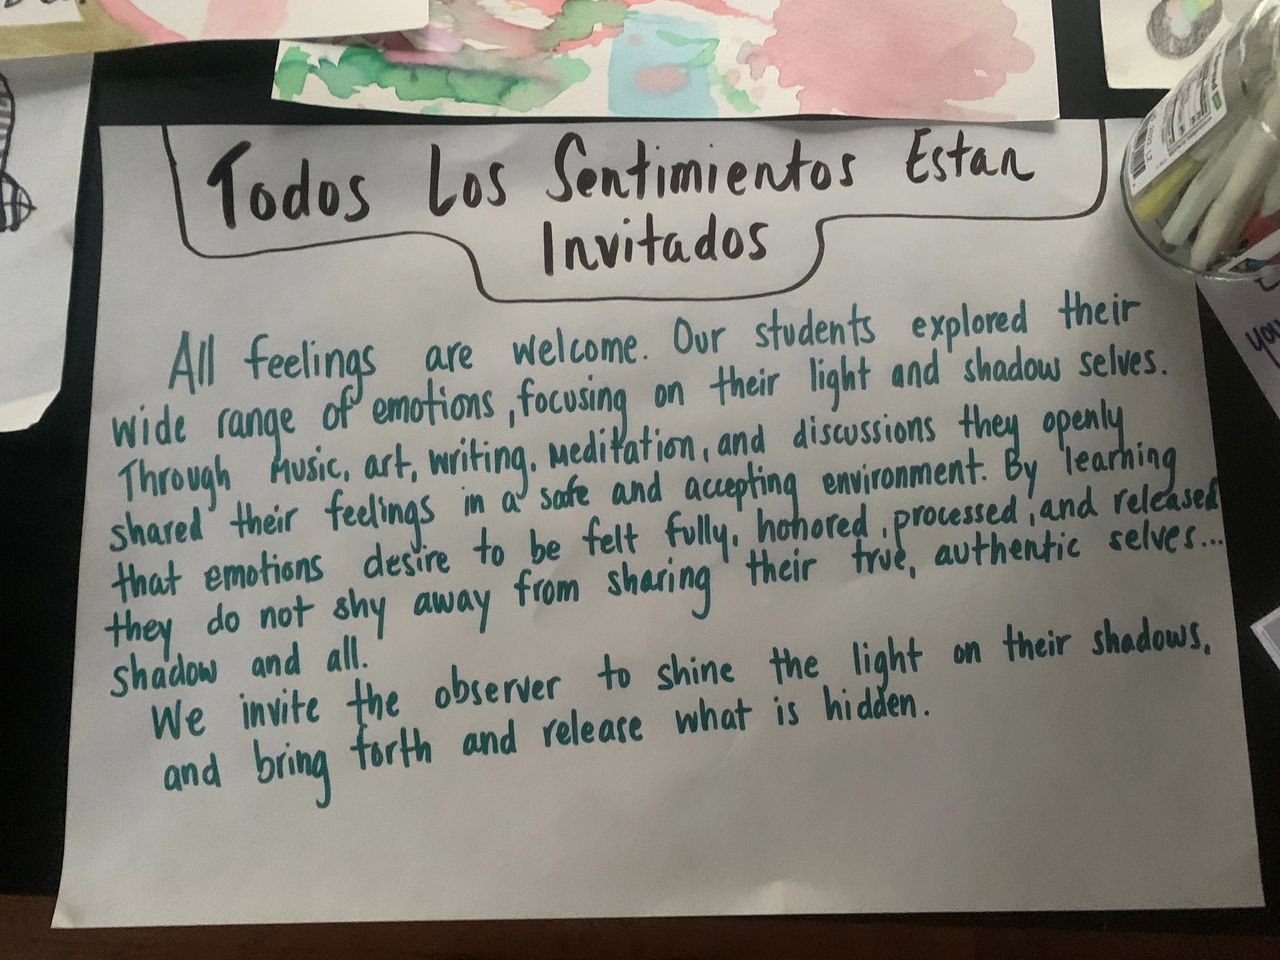 Todos Los Sentimientos Estan
Invitados
All feelings are welcome. Our students explored their
wide range of emotions, focusing on their light and shadow selves.
Through music, art, writing, meditation, and discussions they openly
shared their feelings in a safe and accepting environment. By learning
that emotions desire to be felt fully, honored, processed, and released
they do not shy away from sharing their true, authentic selves...
shadow and all.
We invite the observer to shine the light on their shadows,
and bring forth and release what is hidden.
you